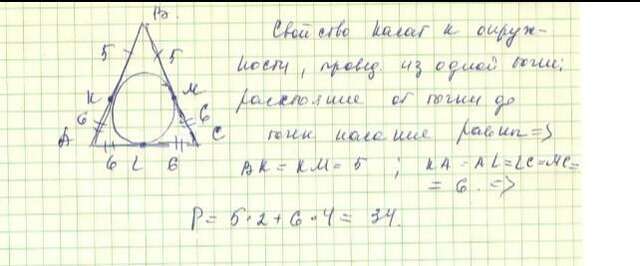 B.
5
5
K
M
6
6
A
C
6 L 6
Свойство касат к окруж-
ности, провед. из одной точки:
расстояние от точки до
точки касание равны =>
BK = KM = 5 ; KA = AL = LC = MC =
= 6. =>
P = 5·2 + 6·4 = 34.